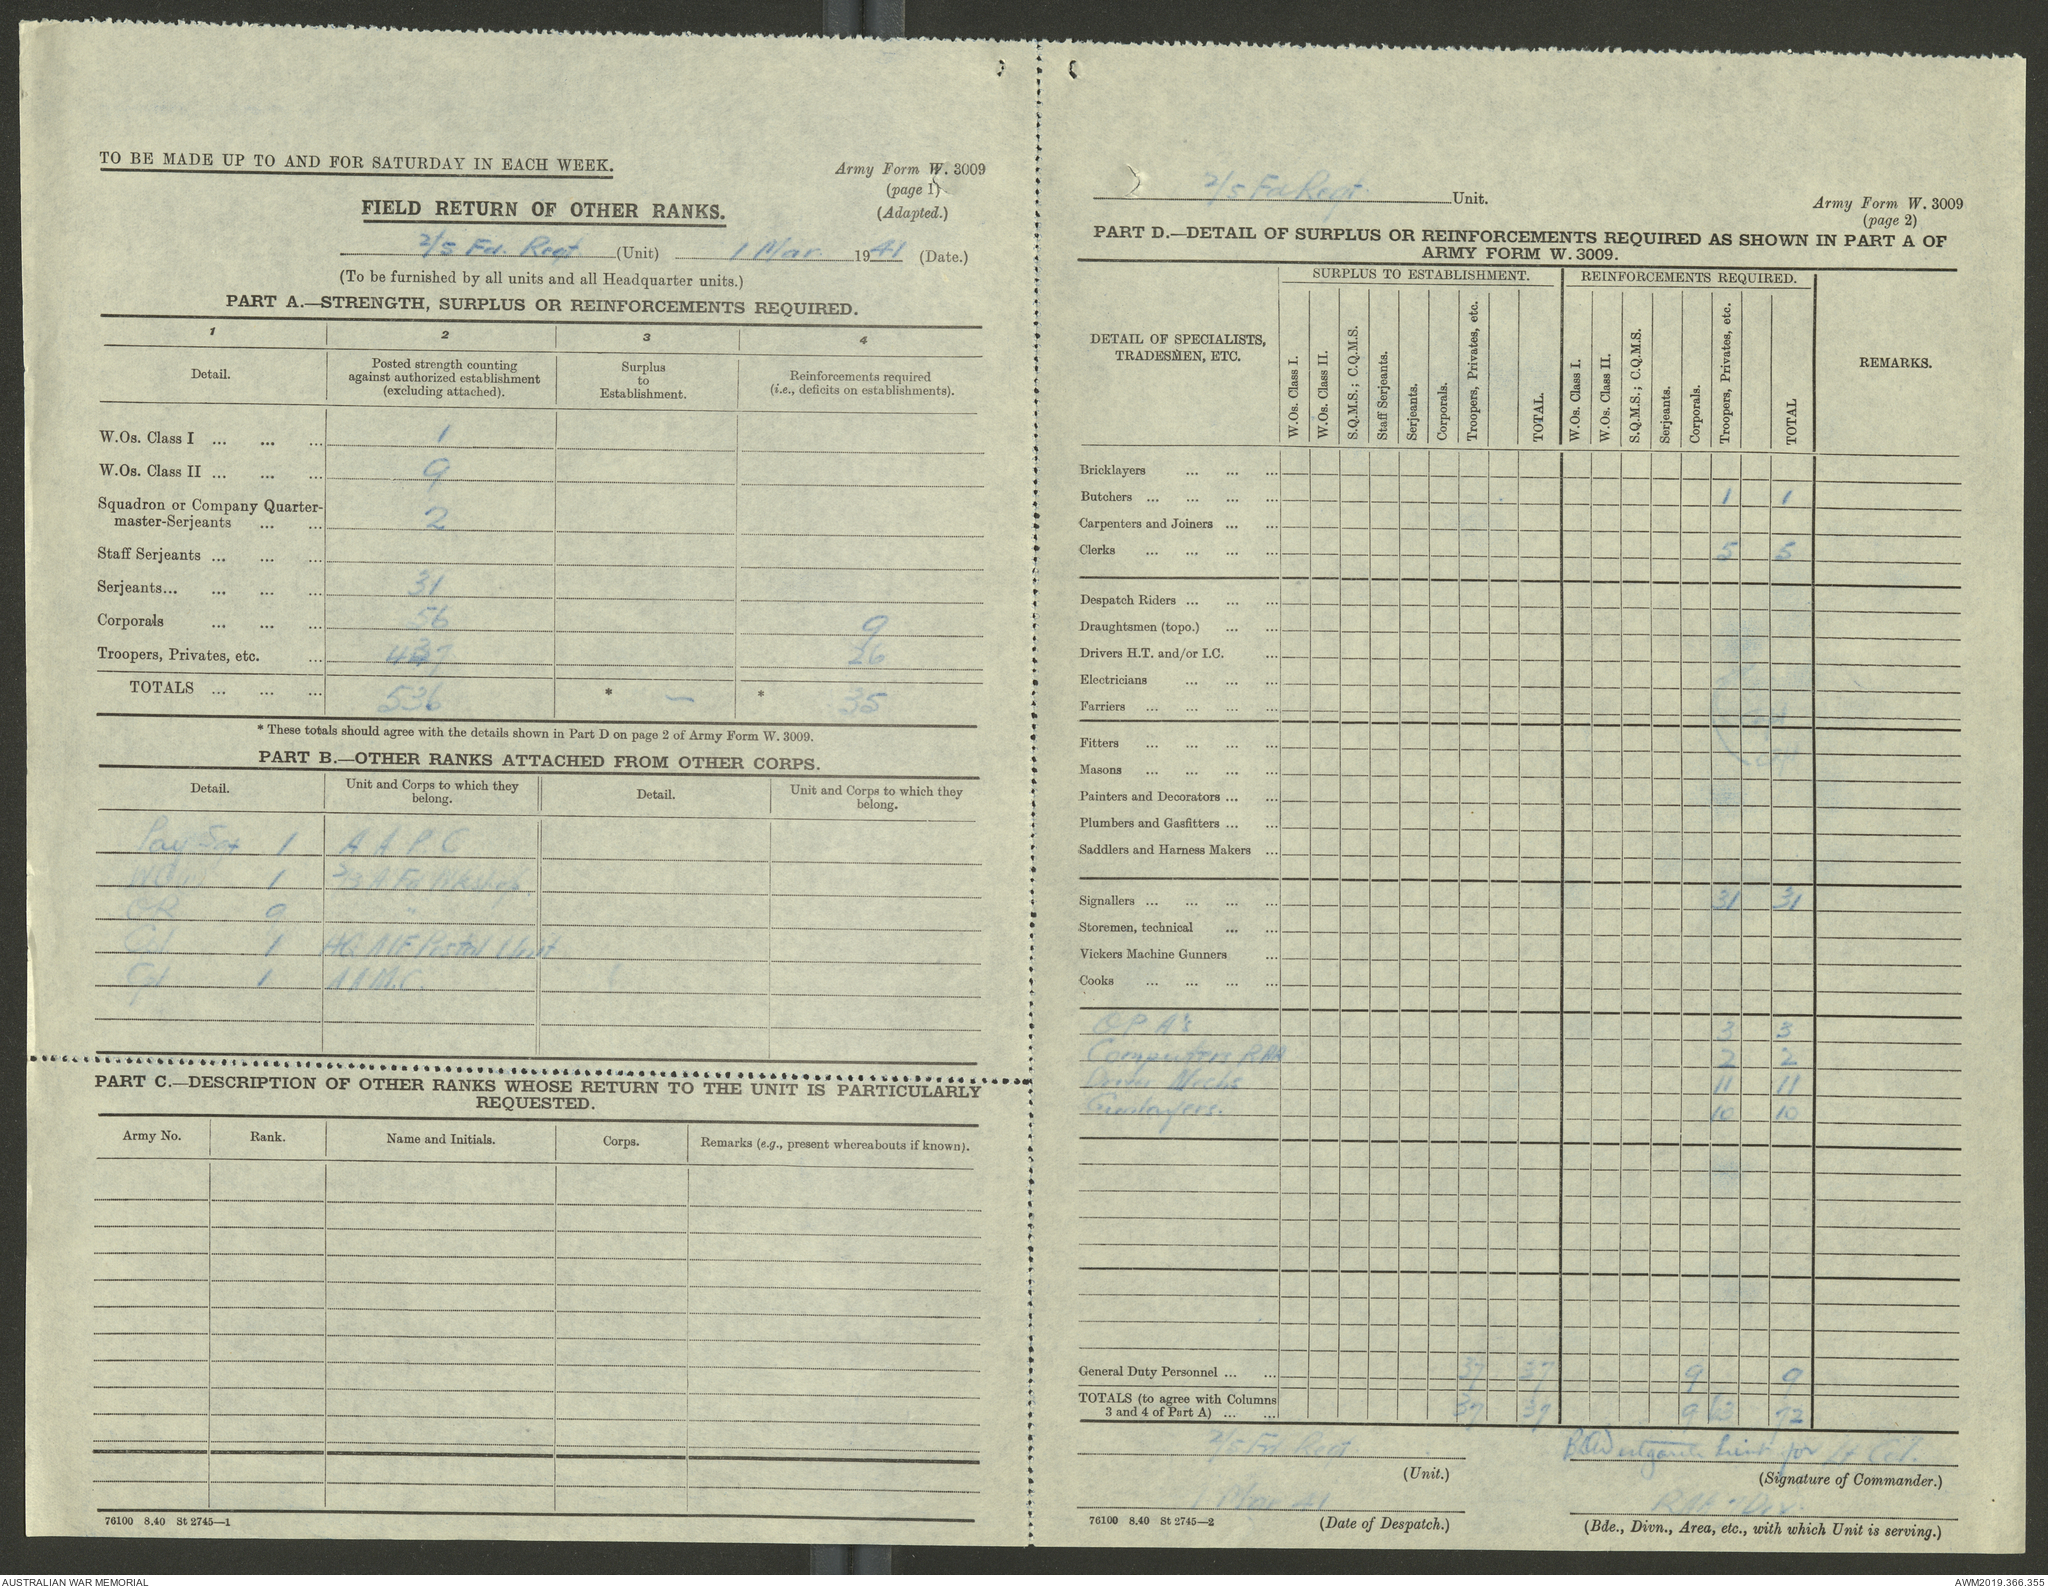 TO BE MADE UP TO AND FOR SATURDAY IN EACH WEEK.
Army Form W. 3009
(page 1)
(Adapted.)
FIELD RETURN OF OTHER RANKS.
2/5 Fd. Regt (Unit) 1 Mar 1941 (Date.)
(To be furnished by all units and all Headquarter units.)
PART A.—STRENGTH, SURPLUS OR REINFORCEMENTS REQUIRED.
1 2 3 4
Detail. Posted strength counting against authorized establishment (excluding attached). Surplus to Establishment. Reinforcements required (i.e., deficits on establishments).
W.Os. Class I ... ... ... 1
W.Os. Class II ... ... ... 9
Squadron or Company Quarter-
master-Serjeants ... ... 2
Staff Serjeants ... ... ...
Serjeants... ... ... ... 31
Corporals ... ... ... 56 9
Troopers, Privates, etc. ... 437 26
TOTALS ... ... ... 536 * — * 35
* These totals should agree with the details shown in Part D on page 2 of Army Form W. 3009.
PART B.—OTHER RANKS ATTACHED FROM OTHER CORPS.
Detail. Unit and Corps to which they belong. Detail. Unit and Corps to which they belong.
Pay Sgt 1 A A P C
1 2/3 A Fd Wkshop
OR 9 "
Cpl 1 HQ AIF Postal Unit
Cpl 1 A A M.C.
PART C.—DESCRIPTION OF OTHER RANKS WHOSE RETURN TO THE UNIT IS PARTICULARLY
REQUESTED.
Army No. Rank. Name and Initials. Corps. Remarks (e.g., present whereabouts if known).
76100 8.40 St 2745—1
2/5 Fd Regt Unit.
Army Form W. 3009
(page 2)
PART D.—DETAIL OF SURPLUS OR REINFORCEMENTS REQUIRED AS SHOWN IN PART A OF
ARMY FORM W. 3009.
SURPLUS TO ESTABLISHMENT. REINFORCEMENTS REQUIRED.
DETAIL OF SPECIALISTS, TRADESMEN, ETC.
W.Os. Class I. W.Os. Class II. S.Q.M.S.; C.Q.M.S. Staff Serjeants. Serjeants. Corporals. Troopers, Privates, etc. TOTAL.
W.Os. Class I. W.Os. Class II. S.Q.M.S.; C.Q.M.S. Serjeants. Corporals. Troopers, Privates, etc. TOTAL
REMARKS.
Bricklayers ... ... ...
Butchers ... ... ... ... 1 1
Carpenters and Joiners ... ...
Clerks ... ... ... ... 5 5
Despatch Riders ... ... ...
Draughtsmen (topo.) ... ...
Drivers H.T. and/or I.C. ...
Electricians ... ... ...
Farriers ... ... ... ...
Fitters ... ... ... ...
Masons ... ... ... ...
Painters and Decorators ... ...
Plumbers and Gasfitters ... ...
Saddlers and Harness Makers ...
Signallers ... ... ... ... 31 31
Storemen, technical ... ...
Vickers Machine Gunners ...
Cooks ... ... ... ...
O P A's 3 3
Computers RAA 2 2
Driver Mechs 11 11
Gunlayers. 10 10
General Duty Personnel ... ... 37 37 9 9
TOTALS (to agree with Columns
3 and 4 of Part A) ... ... 37 37 9 63 72
2/5 Fd Regt
(Unit.)
Lieut for Lt Col.
(Signature of Commander.)
1 Mar 41
(Date of Despatch.)
(Bde., Divn., Area, etc., with which Unit is serving.)
76100 8.40 St 2745—2
AUSTRALIAN WAR MEMORIAL
AWM2019.366.355